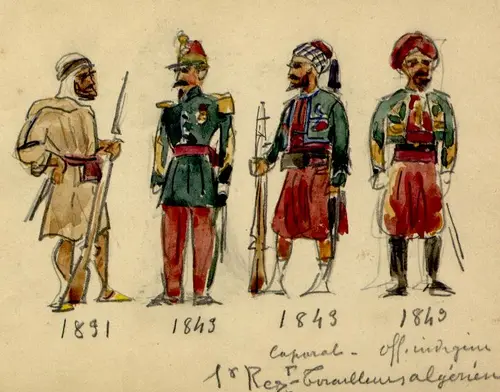 1891 1843 1843 1843
caporal - off. indigène
1r Regt Tirailleurs algérien